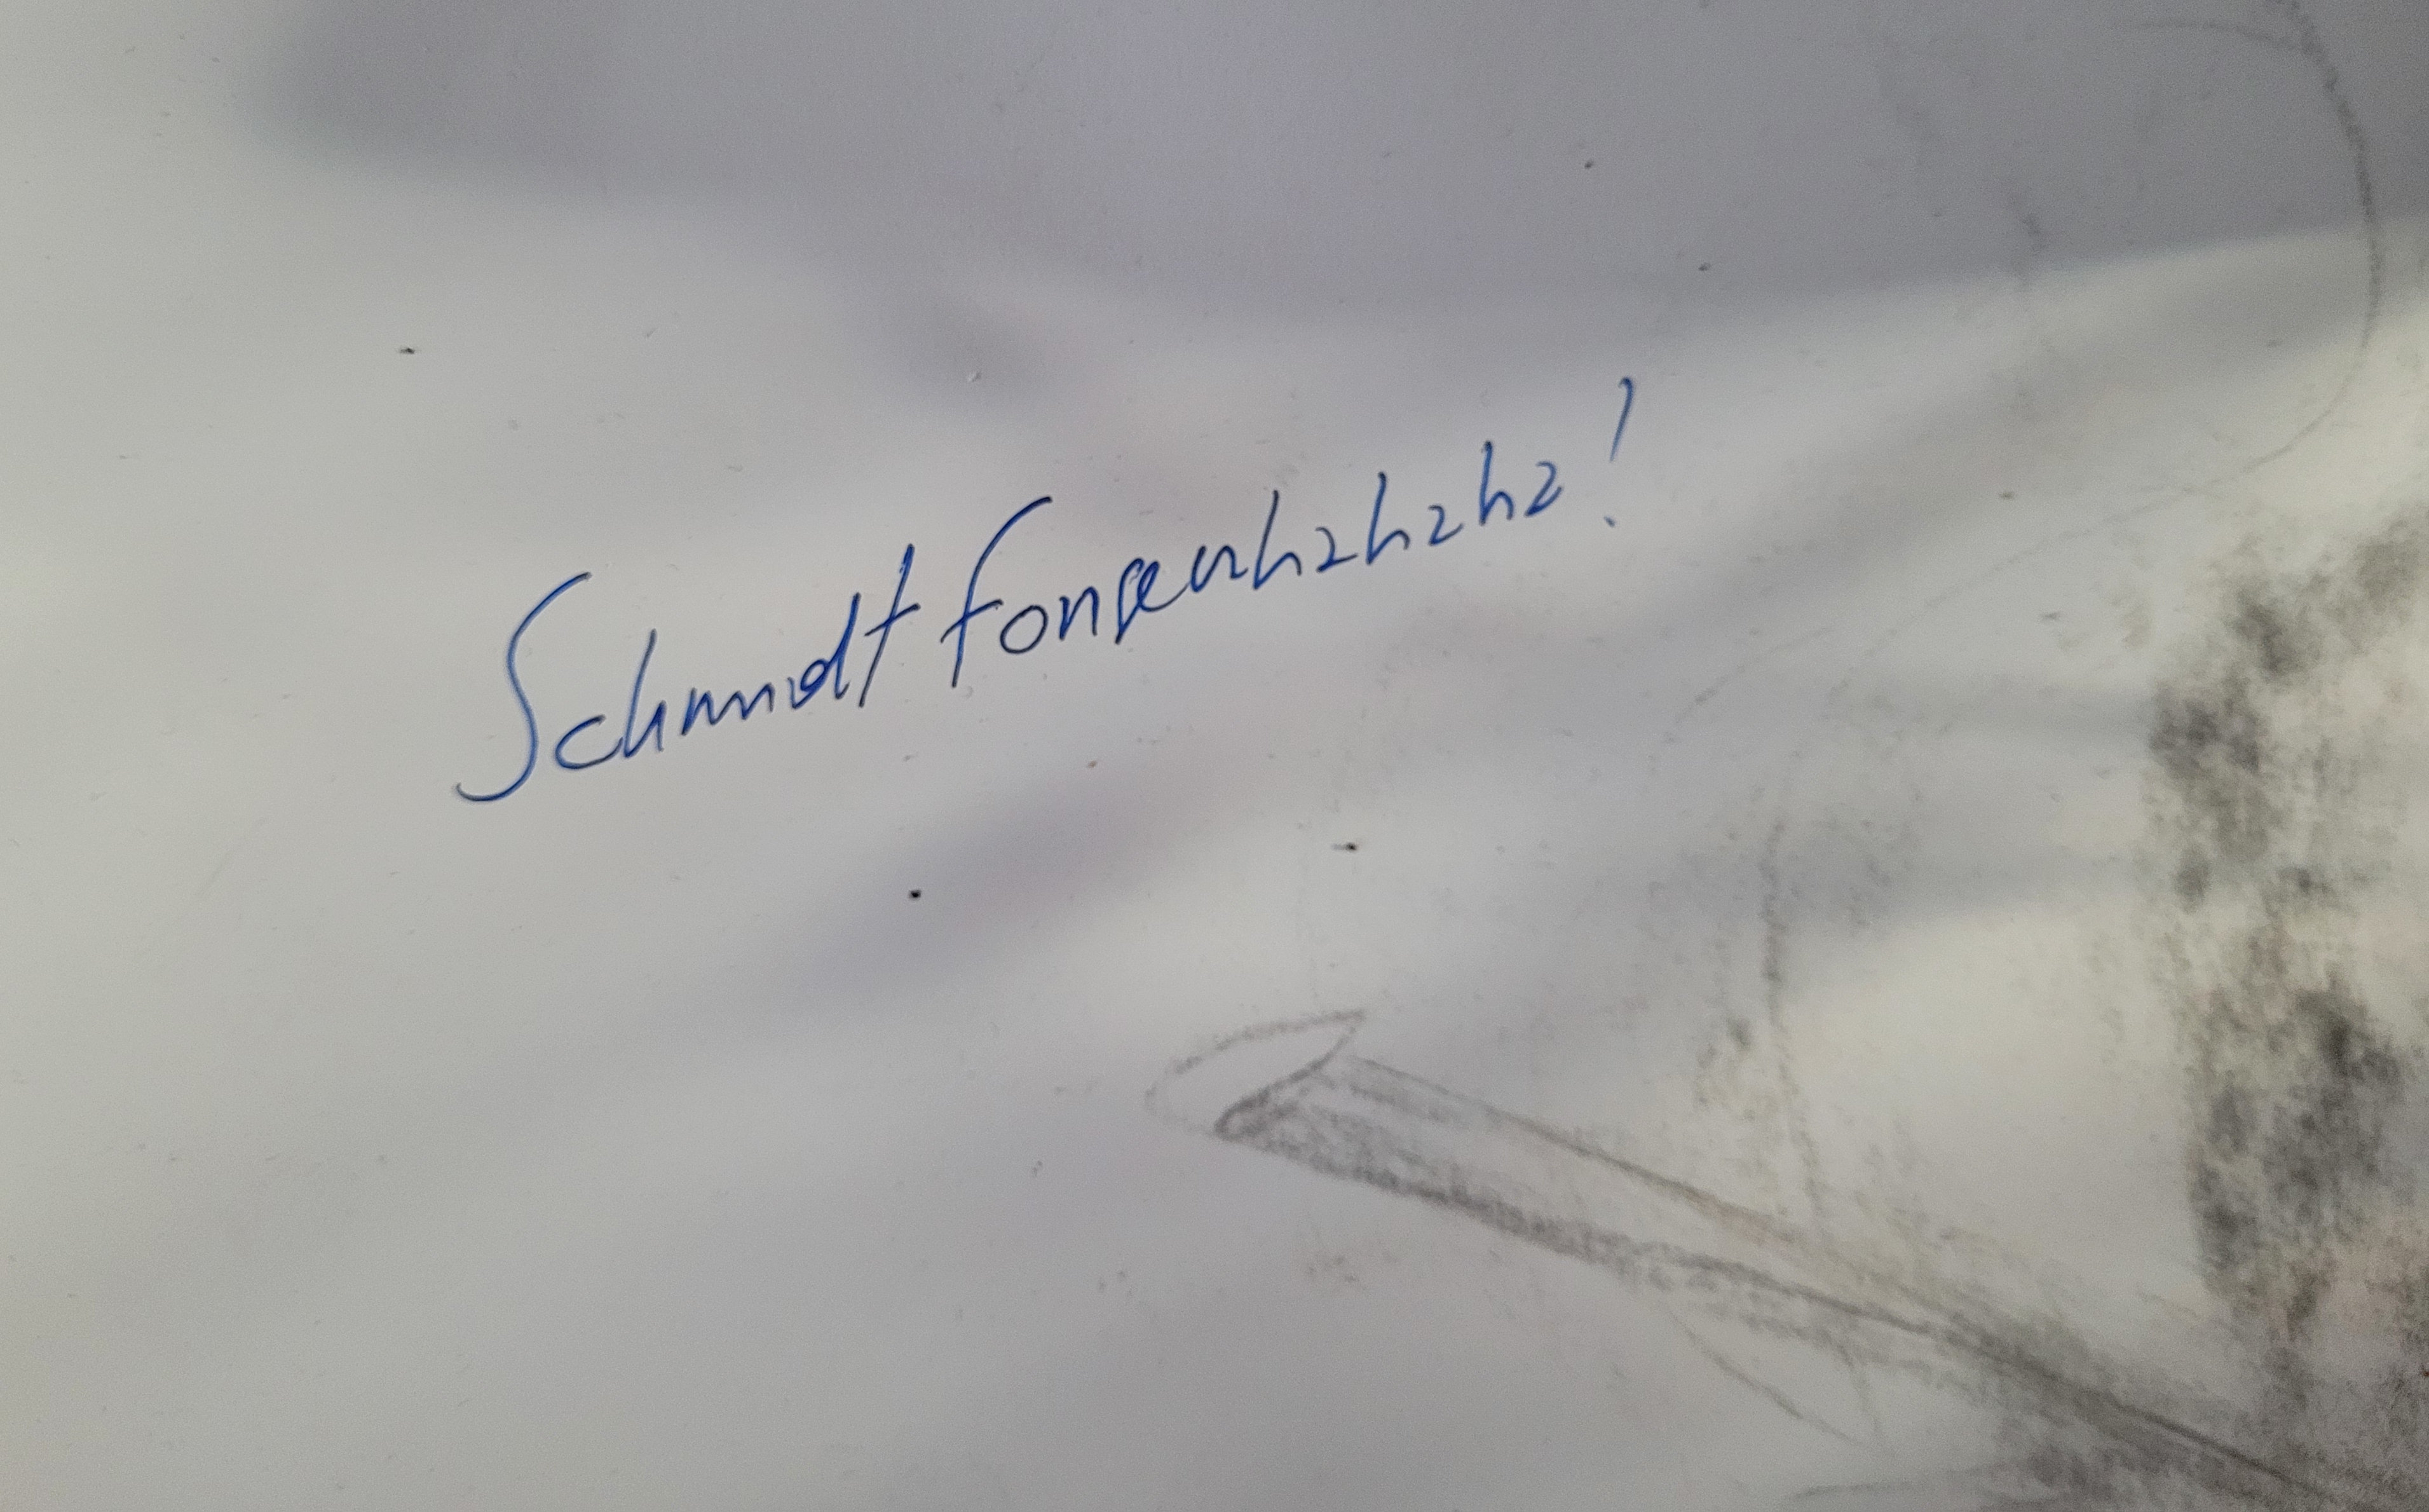 Schmidt fongenhahaha!